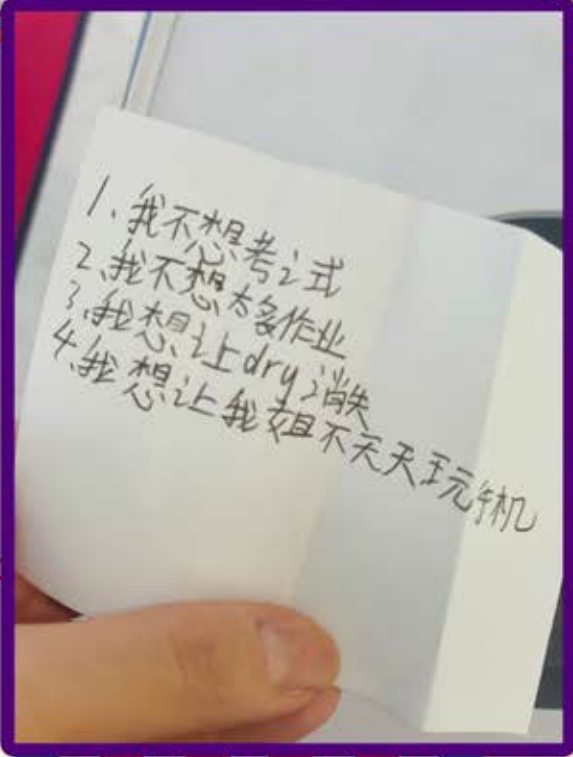 1、我不想考试
2、我不想太多作业
3、我想让dry消失
4、我想让我姐不天天玩手机